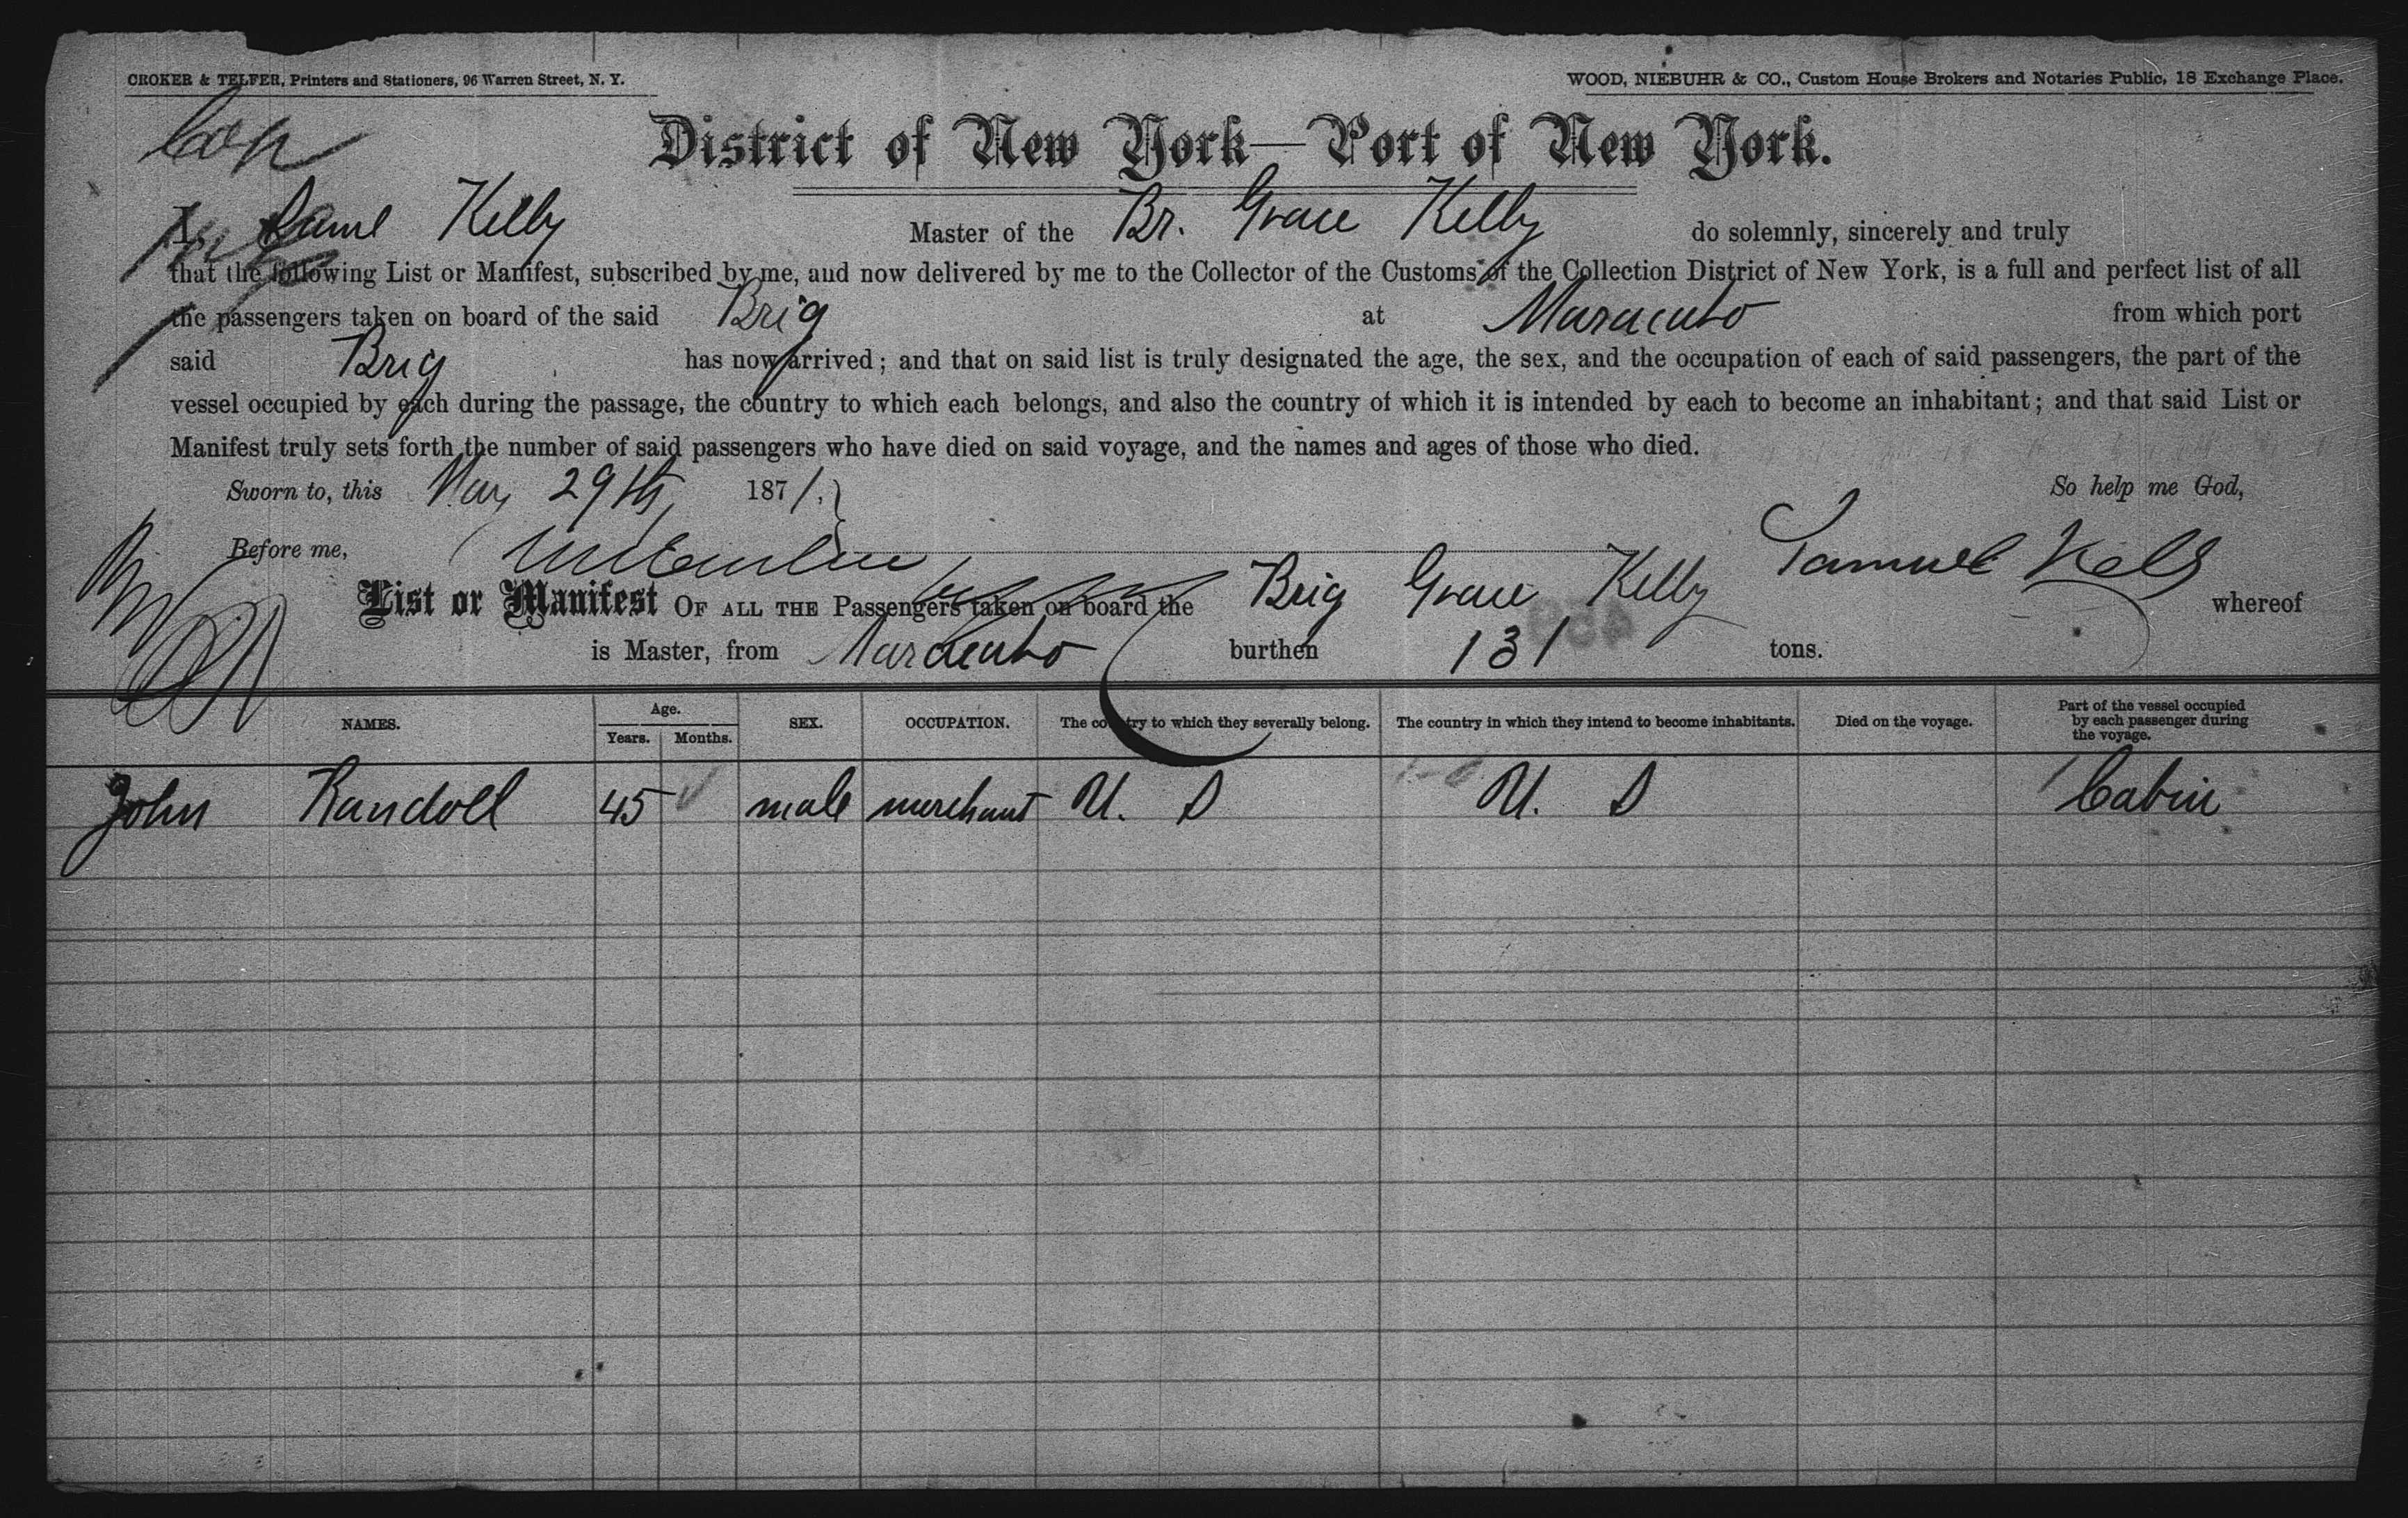 CROKER & TELFER, Printers and Stationers, 96 Warren Street, N. Y.
WOOD, NIEBUHR & CO., Custom House Brokers and Notaries Public, 18 Exchange Place.
District of New York—Port of New York.
I, Saml Kelly Master of the Br. Grace Kelly do solemnly, sincerely and truly
that the following List or Manifest, subscribed by me, and now delivered by me to the Collector of the Customs of the Collection District of New York, is a full and perfect list of all
the passengers taken on board of the said Brig at Maracaibo from which port
said Brig has now arrived; and that on said list is truly designated the age, the sex, and the occupation of each of said passengers, the part of the
vessel occupied by each during the passage, the country to which each belongs, and also the country of which it is intended by each to become an inhabitant; and that said List or
Manifest truly sets forth the number of said passengers who have died on said voyage, and the names and ages of those who died.
Sworn to, this May 29th 1871. So help me God,
Before me, Samuel Kelly
List or Manifest OF ALL THE Passengers taken on board the Brig Grace Kelly whereof
is Master, from Maracaibo burthen 131 tons.
NAMES. Age. Years. Months. SEX. OCCUPATION. The country to which they severally belong. The country in which they intend to become inhabitants. Died on the voyage. Part of the vessel occupied by each passenger during the voyage.
John Randoll 45 male merchant U. S U. S Cabin